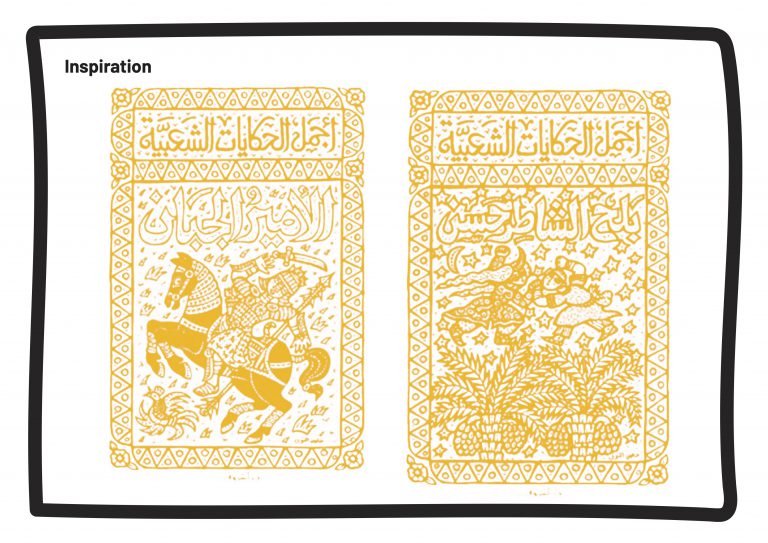 Inspiration
أجمل الحكايات الشعبية
الأمير الجبان
أجمل الحكايات الشعبية
بلح الشاطر حسن